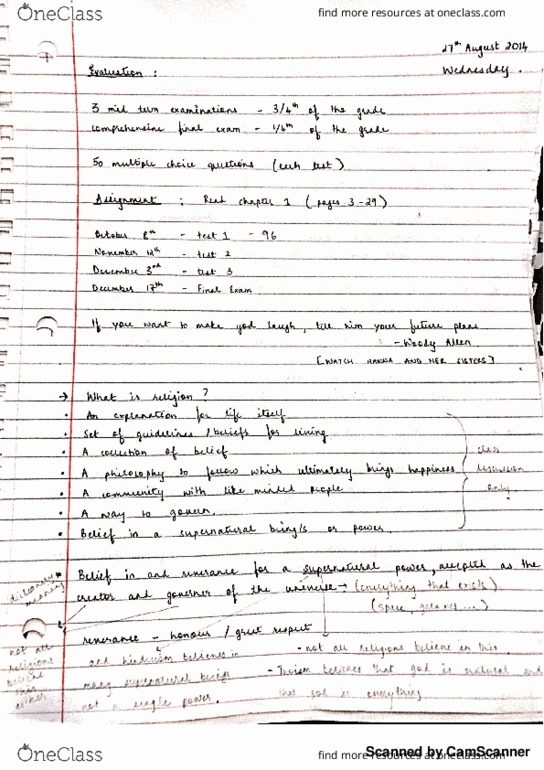 OneClass
find more resources at oneclass.com
27th August 2014
Wednesday.
Evaluation :
3 mid term examinations - 3/4th of the grade
comprehensive final exam - 1/4th of the grade
50 multiple choice questions (each test)
Assignment : Read chapter 1 (pages 3-29)
October 8th - test 1 - 96
November 12th - test 2
December 3rd - test 3
December 17th - Final Exam
If you want to make god laugh, tell him your future plans
- Woody Allen
[WATCH HANNA AND HER SISTERS]
→ What is religion ?
• An explanation for life itself
• Set of guidelines / beliefs for living
• A collection of belief
• A philosophy to follow which ultimately brings happiness
• A community with like minded people
• A way to govern.
• Belief in a supernatural being/s or power
class
discussion
only
dictionary *
meaning
Belief in and reverance for a supernatural power, accepted as the
creator and governor of the universe → (everything that exists)
(space, ...)
reverance - honour / great respect
not all
religions
believe
this
either
and hinduism believes in
many supernatural beings
not a single power.
- not all religions believe in this.
- believes that god is natural and
that god is everything
OneClass
find more resources at oneclass.com
Scanned by CamScanner